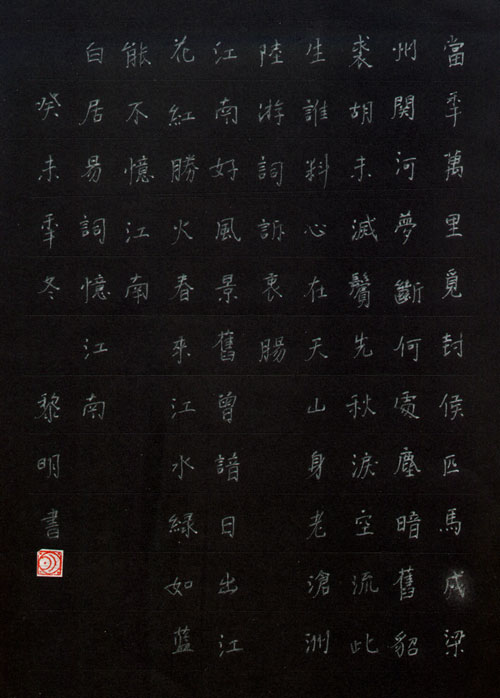 當年萬里覓封侯匹馬戍梁
州關河夢斷何處塵暗舊貂
裘胡未滅鬢先秋淚空流此
生誰料心在天山身老滄洲
陸游詞訴衷腸
江南好風景舊曾諳日出江
花紅勝火春來江水綠如藍
能不憶江南
白居易詞憶江南
癸未年冬 黎明書